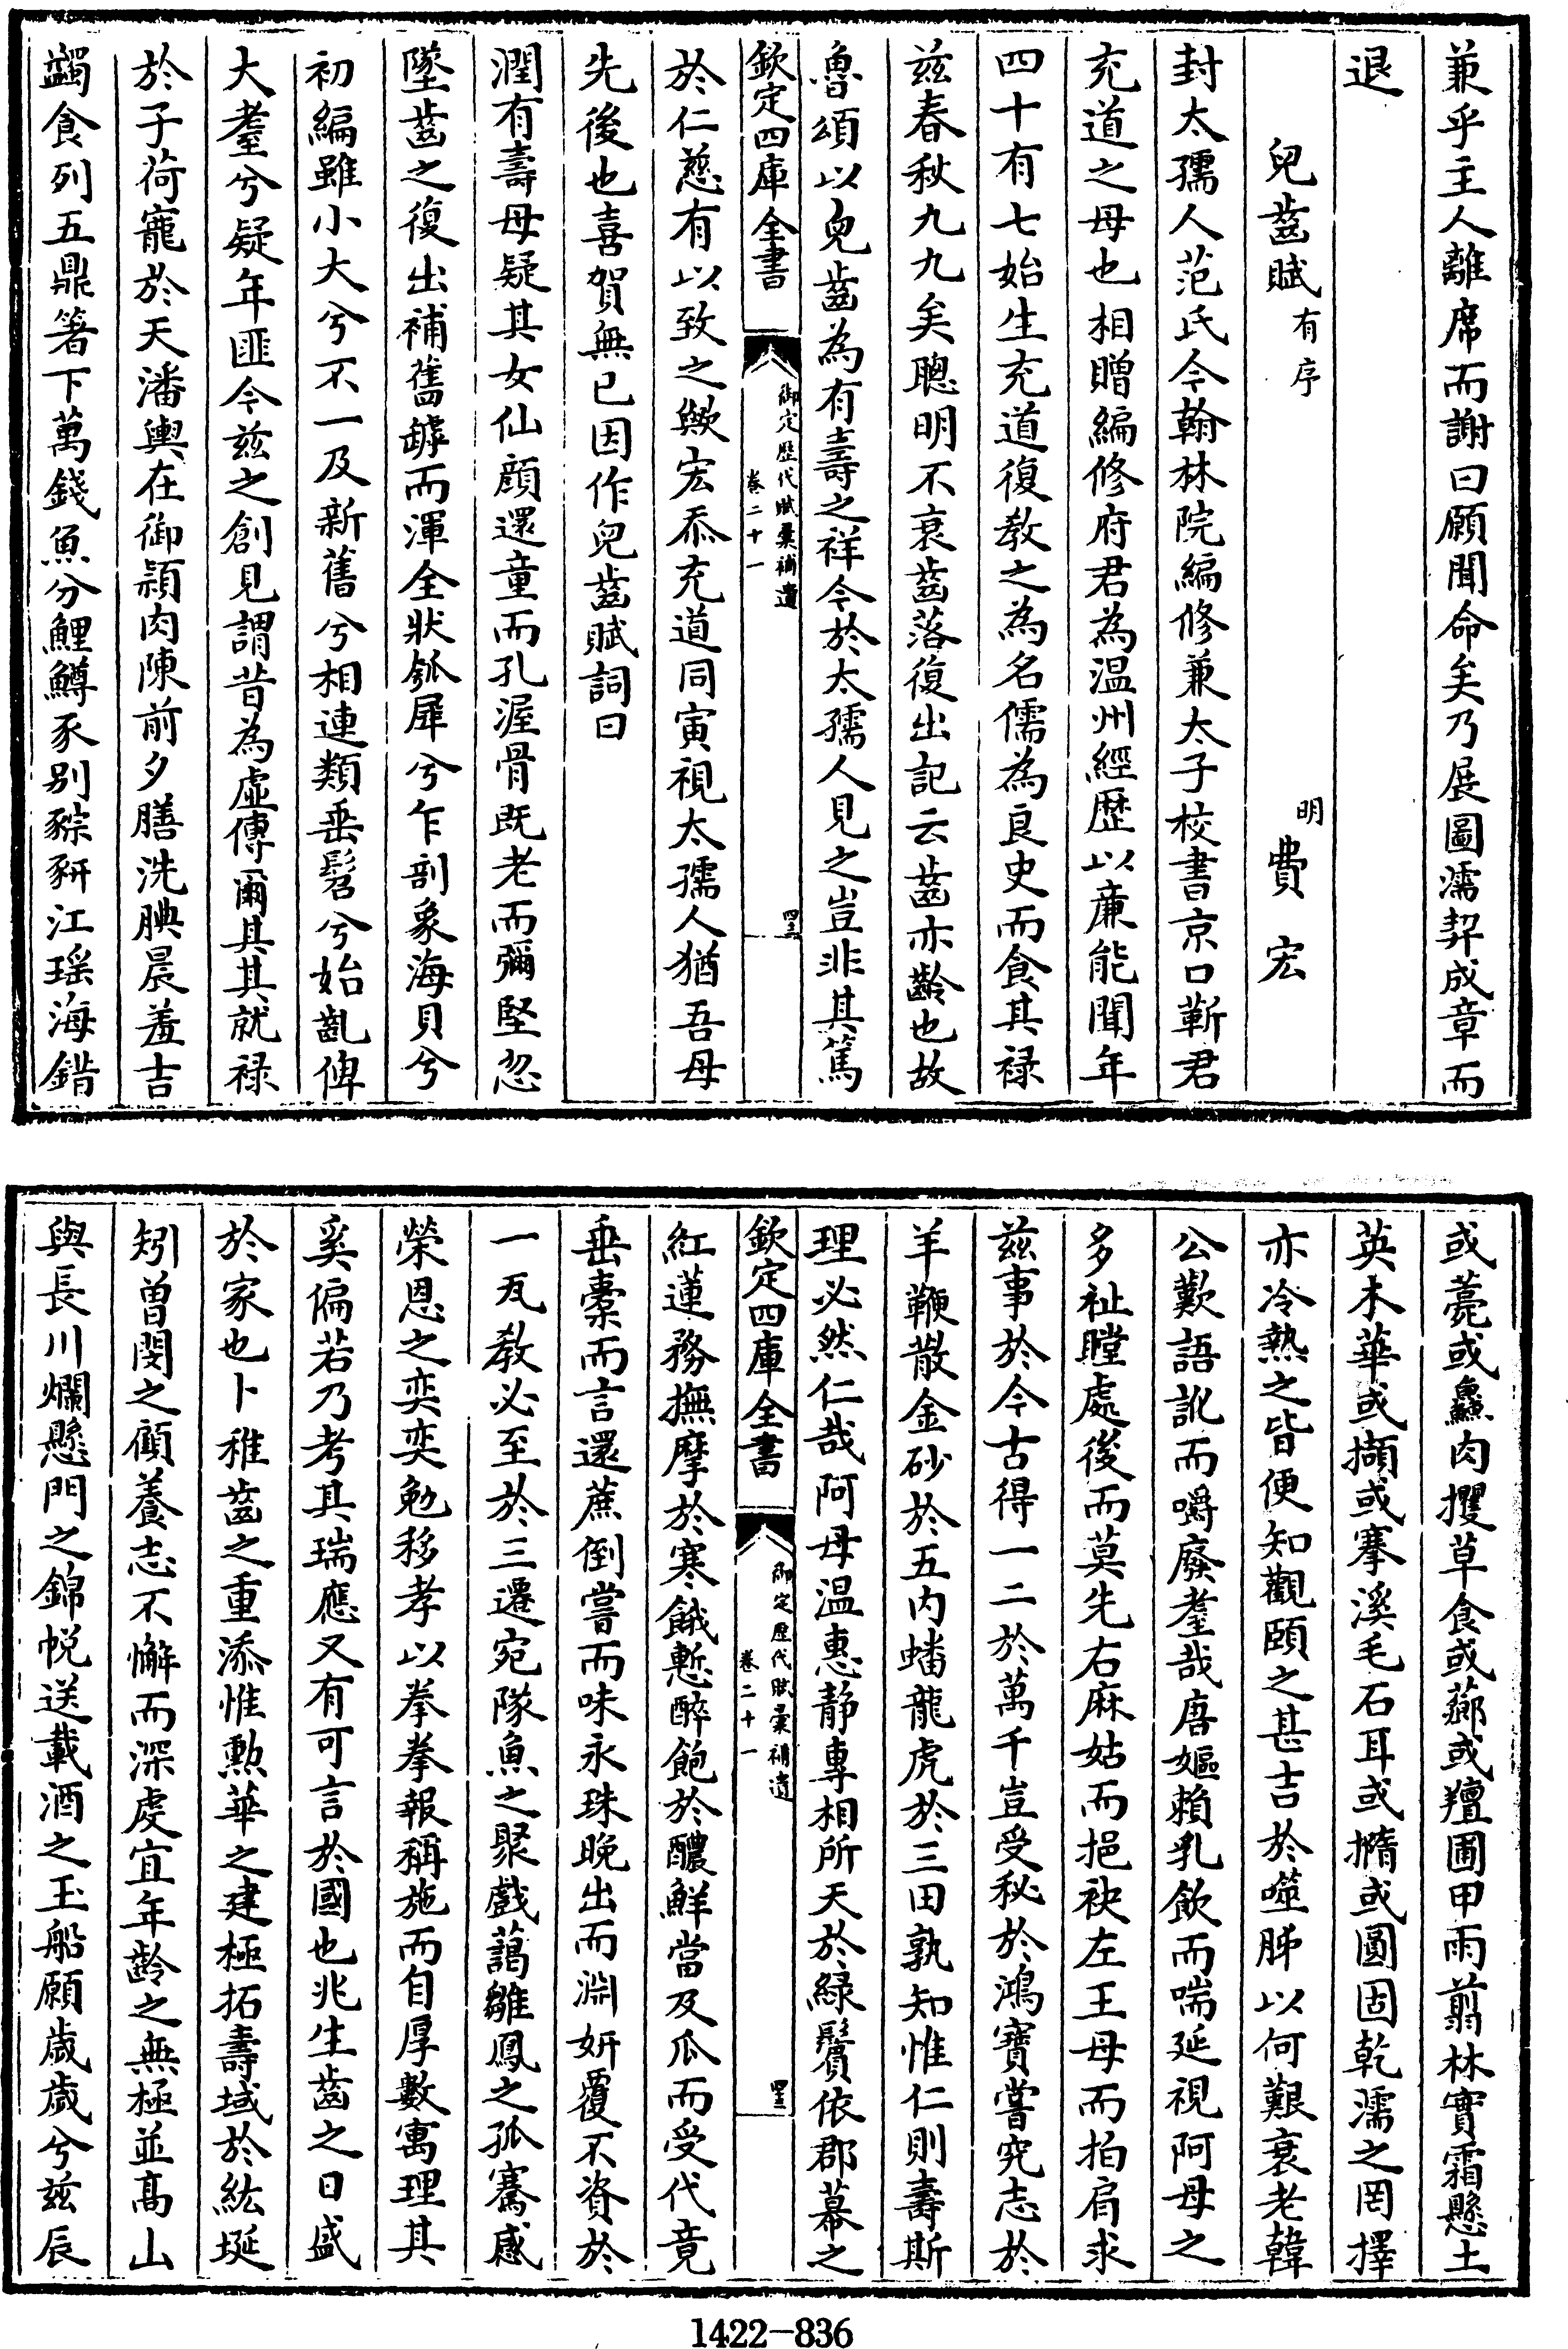 兼乎主人離席而謝曰願聞命矣乃展圖濡毫成章而
退
兒齒賦有序
明費宏
封太孺人范氏今翰林院編修兼太子校書京口靳君
充道之母也相贈編修府君為温州經歷以廉能聞年
四十有七始生充道復教之為名儒為良史而食其禄
兹春秋九九矣聰明不衰齒落復出記云齒亦齡也故
魯頌以兒齒為有壽之祥今於太孺人見之豈非其篤
欽定四庫全書
御定歷代賦彙補遺
卷二十一
於仁慈有以致之歟宏忝充道同寅視太孺人猶吾母
先後也喜賀無已因作兒齒賦詞曰
潤有壽母疑其女仙顔還童而孔渥骨既老而彌堅忽
墜齒之復出補舊罅而渾全狀瓠犀兮乍剖象海貝兮
初編雖小大兮不一及新舊兮相連類垂髫兮始齔俾
大耋兮疑年匪今兹之創見謂昔為虛傳爾其其就禄
於子荷寵於天潘輿在御潁肉陳前夕膳洗腆晨羞吉
蠲食列五鼎箸下萬錢魚分鯉鱒豕别豵豜江瑶海錯
或薧或鱻肉攫草食或薌或羶圃甲雨翦林實霜懸土
英木華或擷或搴溪毛石耳或撱或圓固乾濡之罔擇
亦冷熱之皆便知觀頤之甚吉於噬胏以何艱衰老韓
公歎語訛而嚼廢耋哉唐嫗賴乳飲而喘延視阿母之
多祉瞠處後而莫先右麻姑而挹袂左王母而拍肩求
兹事於今古得一二於萬千豈受秘於鴻寶嘗究志於
羊鞭散金砂於五内蟠龍虎於三田孰知惟仁則壽斯
理必然仁哉阿母温惠静專相所天於綠鬢依郡幕之
欽定四庫全書
御定歷代賦彙補遺
卷二十一
紅蓮務撫摩於寒餓慙醉飽於醲鮮當及瓜而受代竟
垂槖而言還蔗倒嘗而味永珠晚出而淵妍覆不資於
一瓦教必至於三遷宛隊魚之聚戲藹雛鳳之孤騫感
榮恩之奕奕勉移孝以拳拳報稱施而自厚數寓理其
奚偏若乃考其瑞應又有可言於國也兆生齒之日盛
於家也卜稚齒之重添惟勲華之建極拓壽域於紘埏
矧曾閔之顧養志不懈而深虔宜年齡之無極並髙山
與長川爛懸門之錦帨送載酒之玉船願歲歲兮兹辰
1422-836